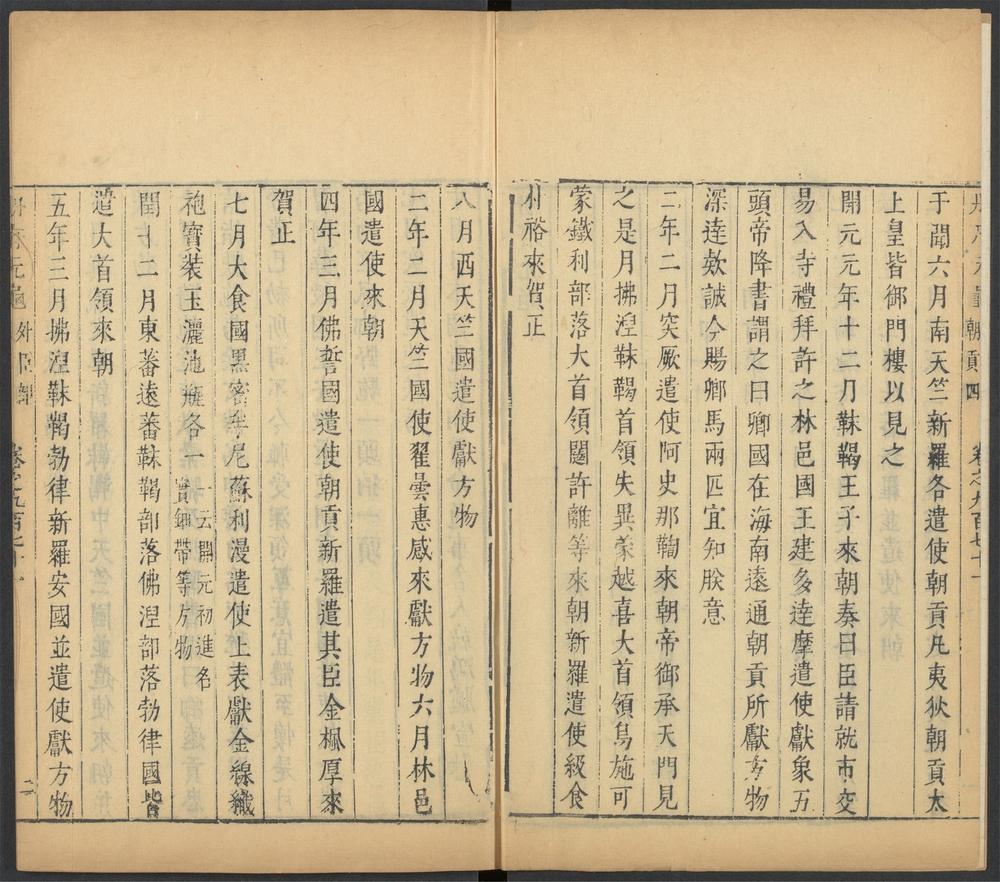 朝貢四 卷之九百七十一
于闐六月南天竺新羅各遣使朝貢凡夷狄朝貢太
上皇皆御門樓以見之
開元元年十二月靺鞨王子來朝奏曰臣請就市交
易入寺禮拜許之林邑國王建多達摩遣使獻象五
頭帝降書謂之曰卿國在海南遠通朝貢所獻方物
深達欵誠今賜卿馬兩匹宜知朕意
二年二月突厥遣使阿史那鞫來朝帝御承天門見
之是月拂湼靺鞨首領失異蒙越喜大首領烏施可
蒙鐵利部落大首領闥許離等來朝新羅遣使級食
朴裕來賀正
八月西天竺國遣使獻方物
二年二月天竺國使翟曇惠感來獻方物六月林邑
國遣使來朝
四年三月佛誓國遣使朝貢新羅遣其臣金楓厚來
賀正
七月大食國黑密牟尼蘇利漫遣使上表獻金線織
袍寶裝玉灑池瓶各一一云開元初進名寶鈿帶等方物
閏十二月東蕃遠蕃靺鞨部落佛湼部落勃律國皆
遣大首領來朝
五年三月拂湼靺鞨勃律新羅安國並遣使獻方物
冊府元龜 外臣部 卷之九百七十一 二